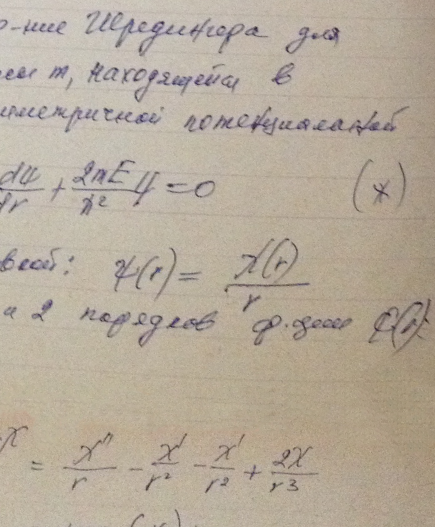 р-ние Шредингера для
сы m, находящейся в
имметричной потенциальной
dψ/dr + 2mE/ħ² ψ = 0 (*)
вкой: ψ(r) = χ(r)/r
2 порядков φ(r):
= χ''/r - χ'/r² - χ'/r² + 2χ/r³